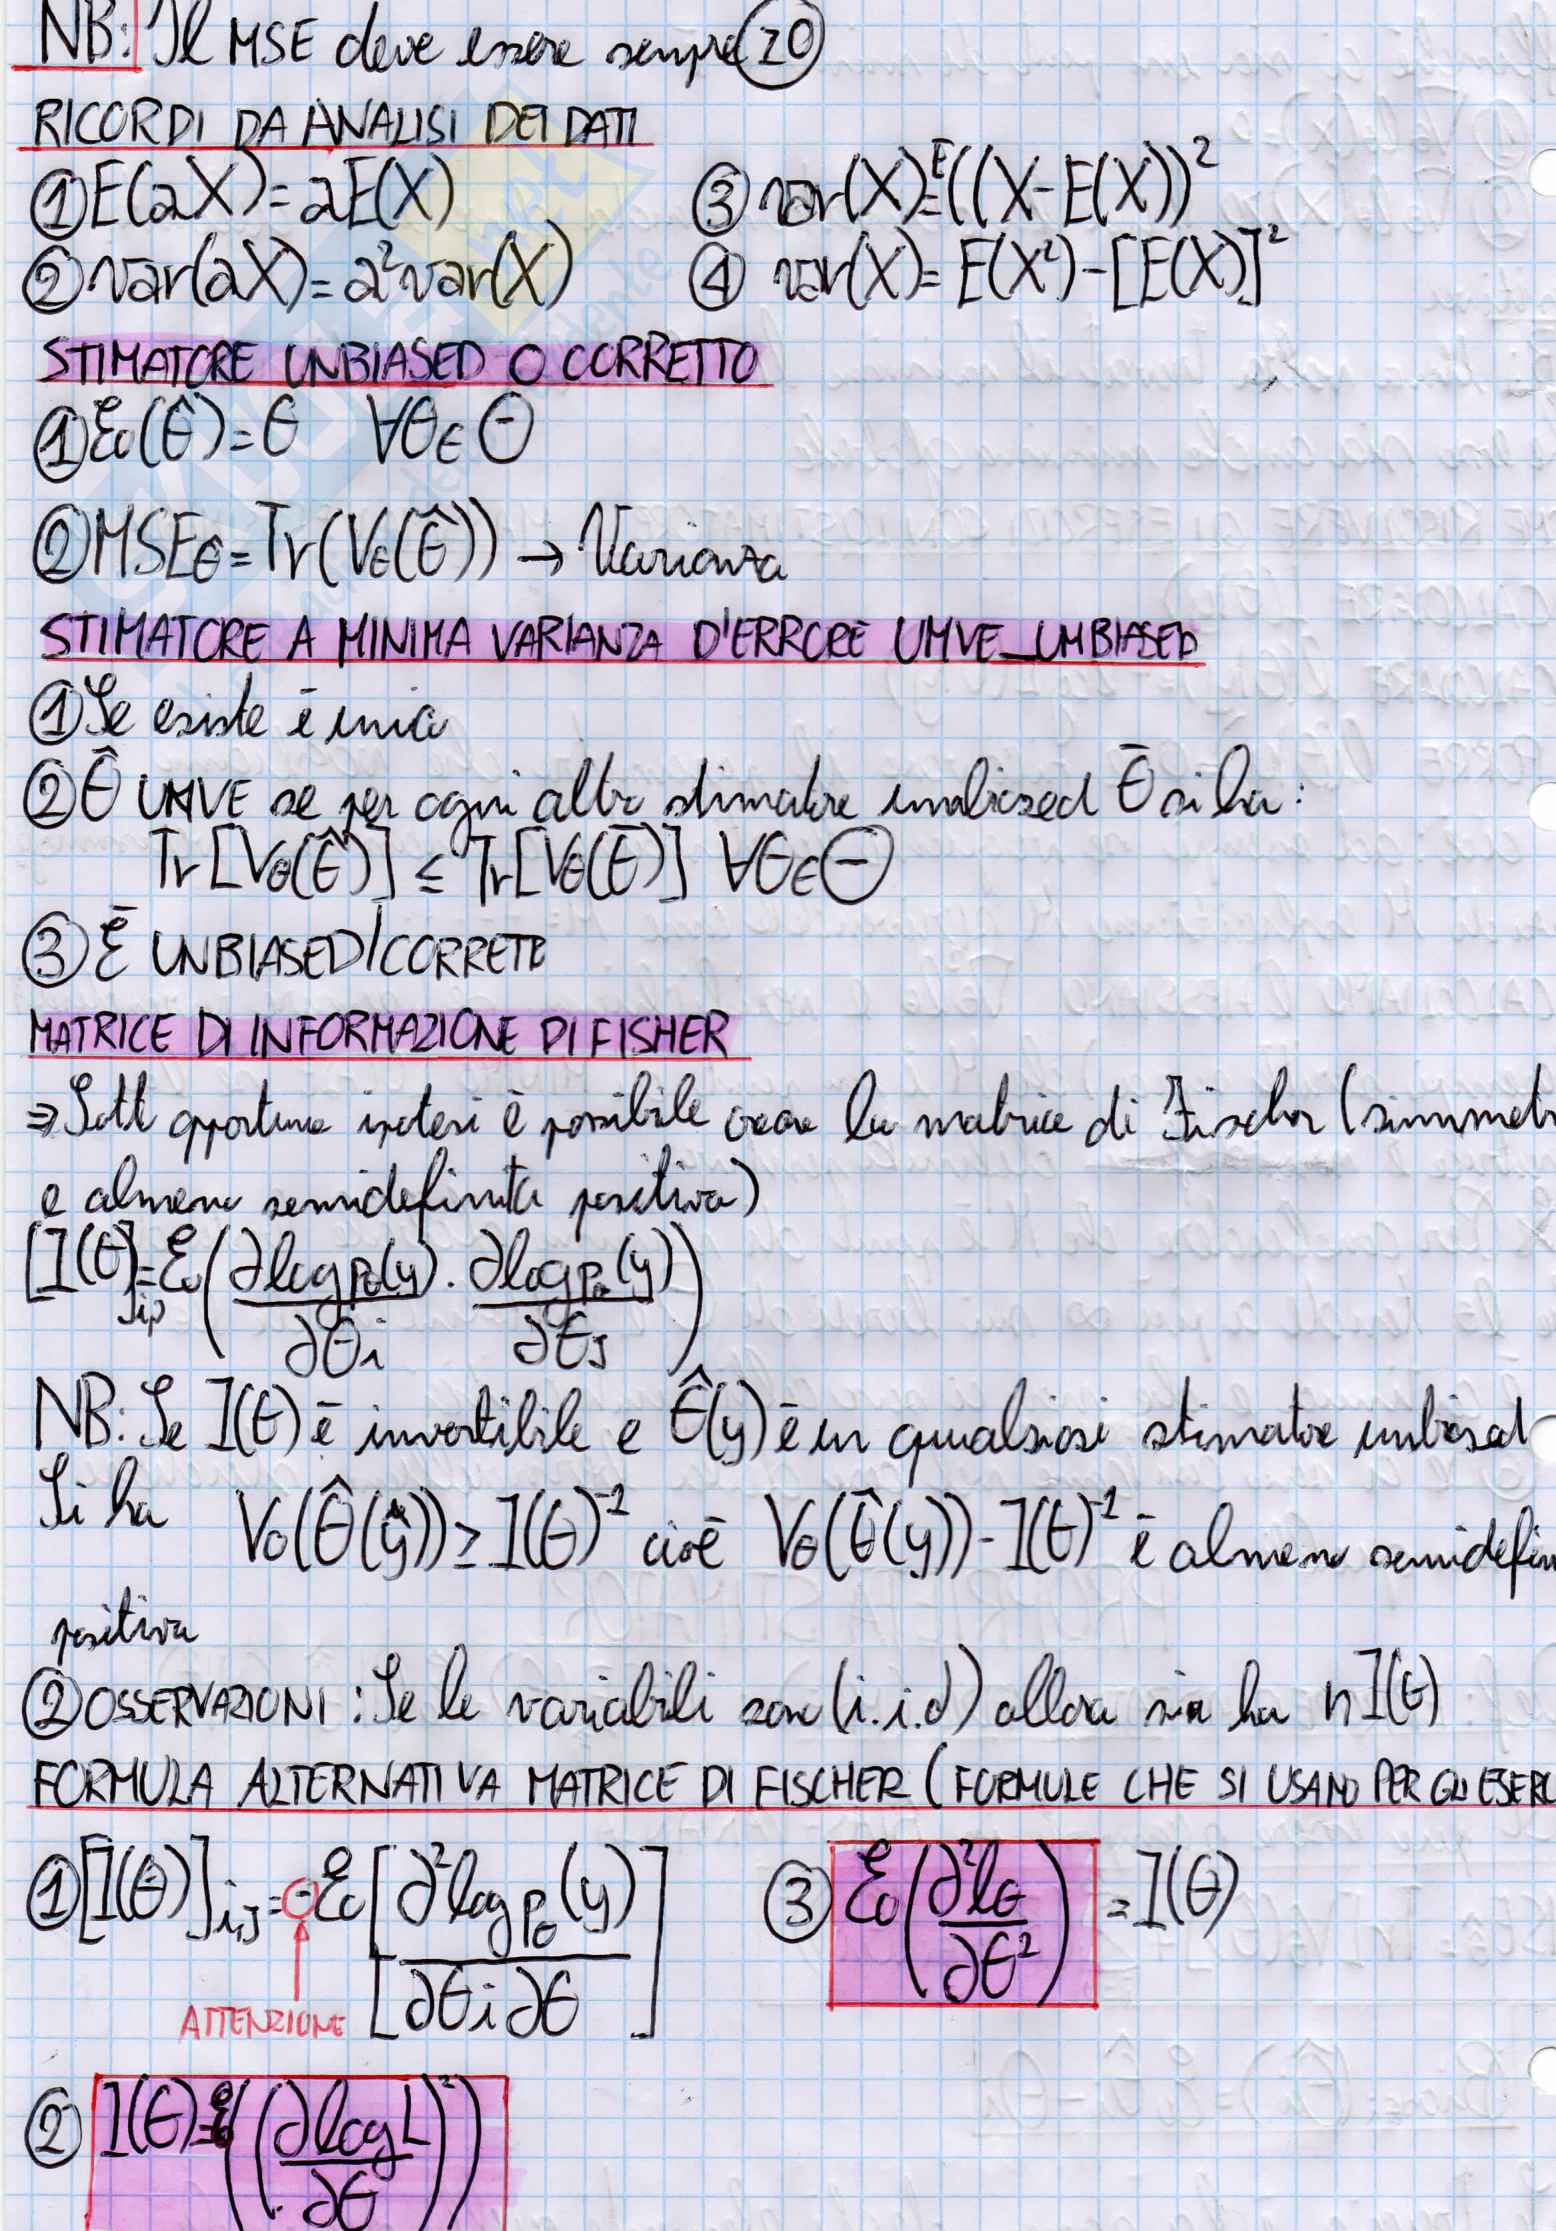 NB: Il MSE deve essere sempre ≥0
RICORDI DA ANALISI DEI DATI
① E(aX)=aE(X) ③ var(X)=E((X-E(X))²
② var(aX)=a²var(X) ④ var(X)=E(X²)-[E(X)]²
STIMATORE UNBIASED O CORRETTO
① Ɛθ(θ̂)=θ ∀θ∈Θ
② MSEθ=Tr(Vθ(θ̂)) → Varianza
STIMATORE A MINIMA VARIANZA D'ERRORE UMVE_UMBIASED
① Se esiste è unico
② θ̂ UMVE se per ogni altro stimatore unbiased θ̄ si ha:
Tr[Vθ(θ̂)] ≤ Tr[Vθ(θ̄)] ∀θ∈Θ
③ È UNBIASED/CORRETTO
MATRICE DI INFORMAZIONE DI FISHER
⇒ Sotto opportune ipotesi è possibile creare la matrice di Fischer (simmetr
e almeno semidefinita positiva)
[I(θ)]ij=Ɛθ(∂logpθ(y)/∂θi · ∂logpθ(y)/∂θj)
NB: Se I(θ) è invertibile e θ̂(y) è un qualsiasi stimatore unbiased
Si ha Vθ(θ̂(y))≥I(θ)⁻¹ cioè Vθ(θ̂(y))-I(θ)⁻¹ è almeno semidefin
positiva
② OSSERVAZIONI: Se le variabili sono (i.i.d) allora si ha nI(θ)
FORMULA ALTERNATIVA MATRICE DI FISCHER (FORMULE CHE SI USANO PER GLI ESERC
① [I(θ)]i,j=-Ɛθ[∂²logpθ(y)/∂θi∂θ] ③ Ɛθ(∂²lθ/∂θ²)=I(θ)
ATTENZIONE
② I(θ)=Ɛθ((∂logL/∂θ)²)